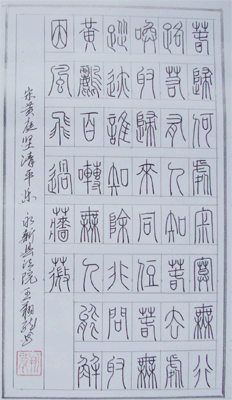 萅歸何處寂寞無行
路若有人知萅去處
喚取歸來同住萅無
蹤迹誰知除非問取
黃鸝百囀無人能解
因風飛過薔薇
宋黄庭坚清平乐 永新县法院王